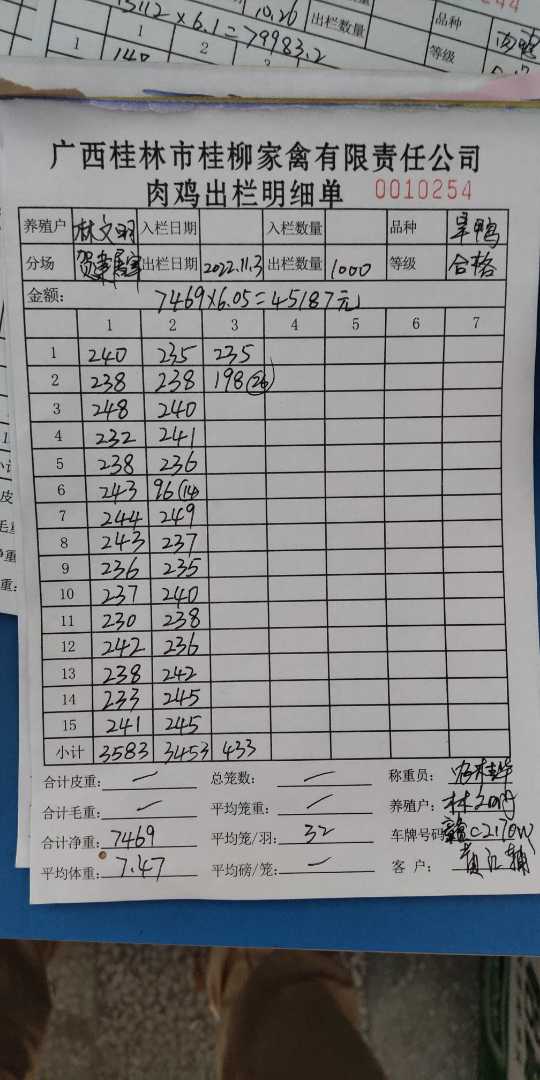 13112×6.1=79983.2
10.26
出栏数量
品种
等级
广西桂林市桂柳家禽有限责任公司
肉鸡出栏明细单 0010254
养殖户 林文明 入栏日期 入栏数量 品种 旱鸭
分场 出栏日期 2022.11.3 出栏数量 1000 等级 合格
金额: 7469×6.05=45187元
1 2 3 4 5 6 7
1 240 235 235
2 238 238 198(26)
3 248 240
4 232 241
5 238 236
6 243 96(14)
7 244 249
8 243 237
9 236 235
10 237 240
11 230 238
12 242 236
13 238 242
14 233 245
15 241 245
小计 3583 3453 433
合计皮重: — 总笼数: — 称重员:
合计毛重: — 平均笼重: — 养殖户: 林
合计净重: 7469 平均笼/羽: 32 车牌号码
平均体重: 7.47 平均磅/笼: — 客户: